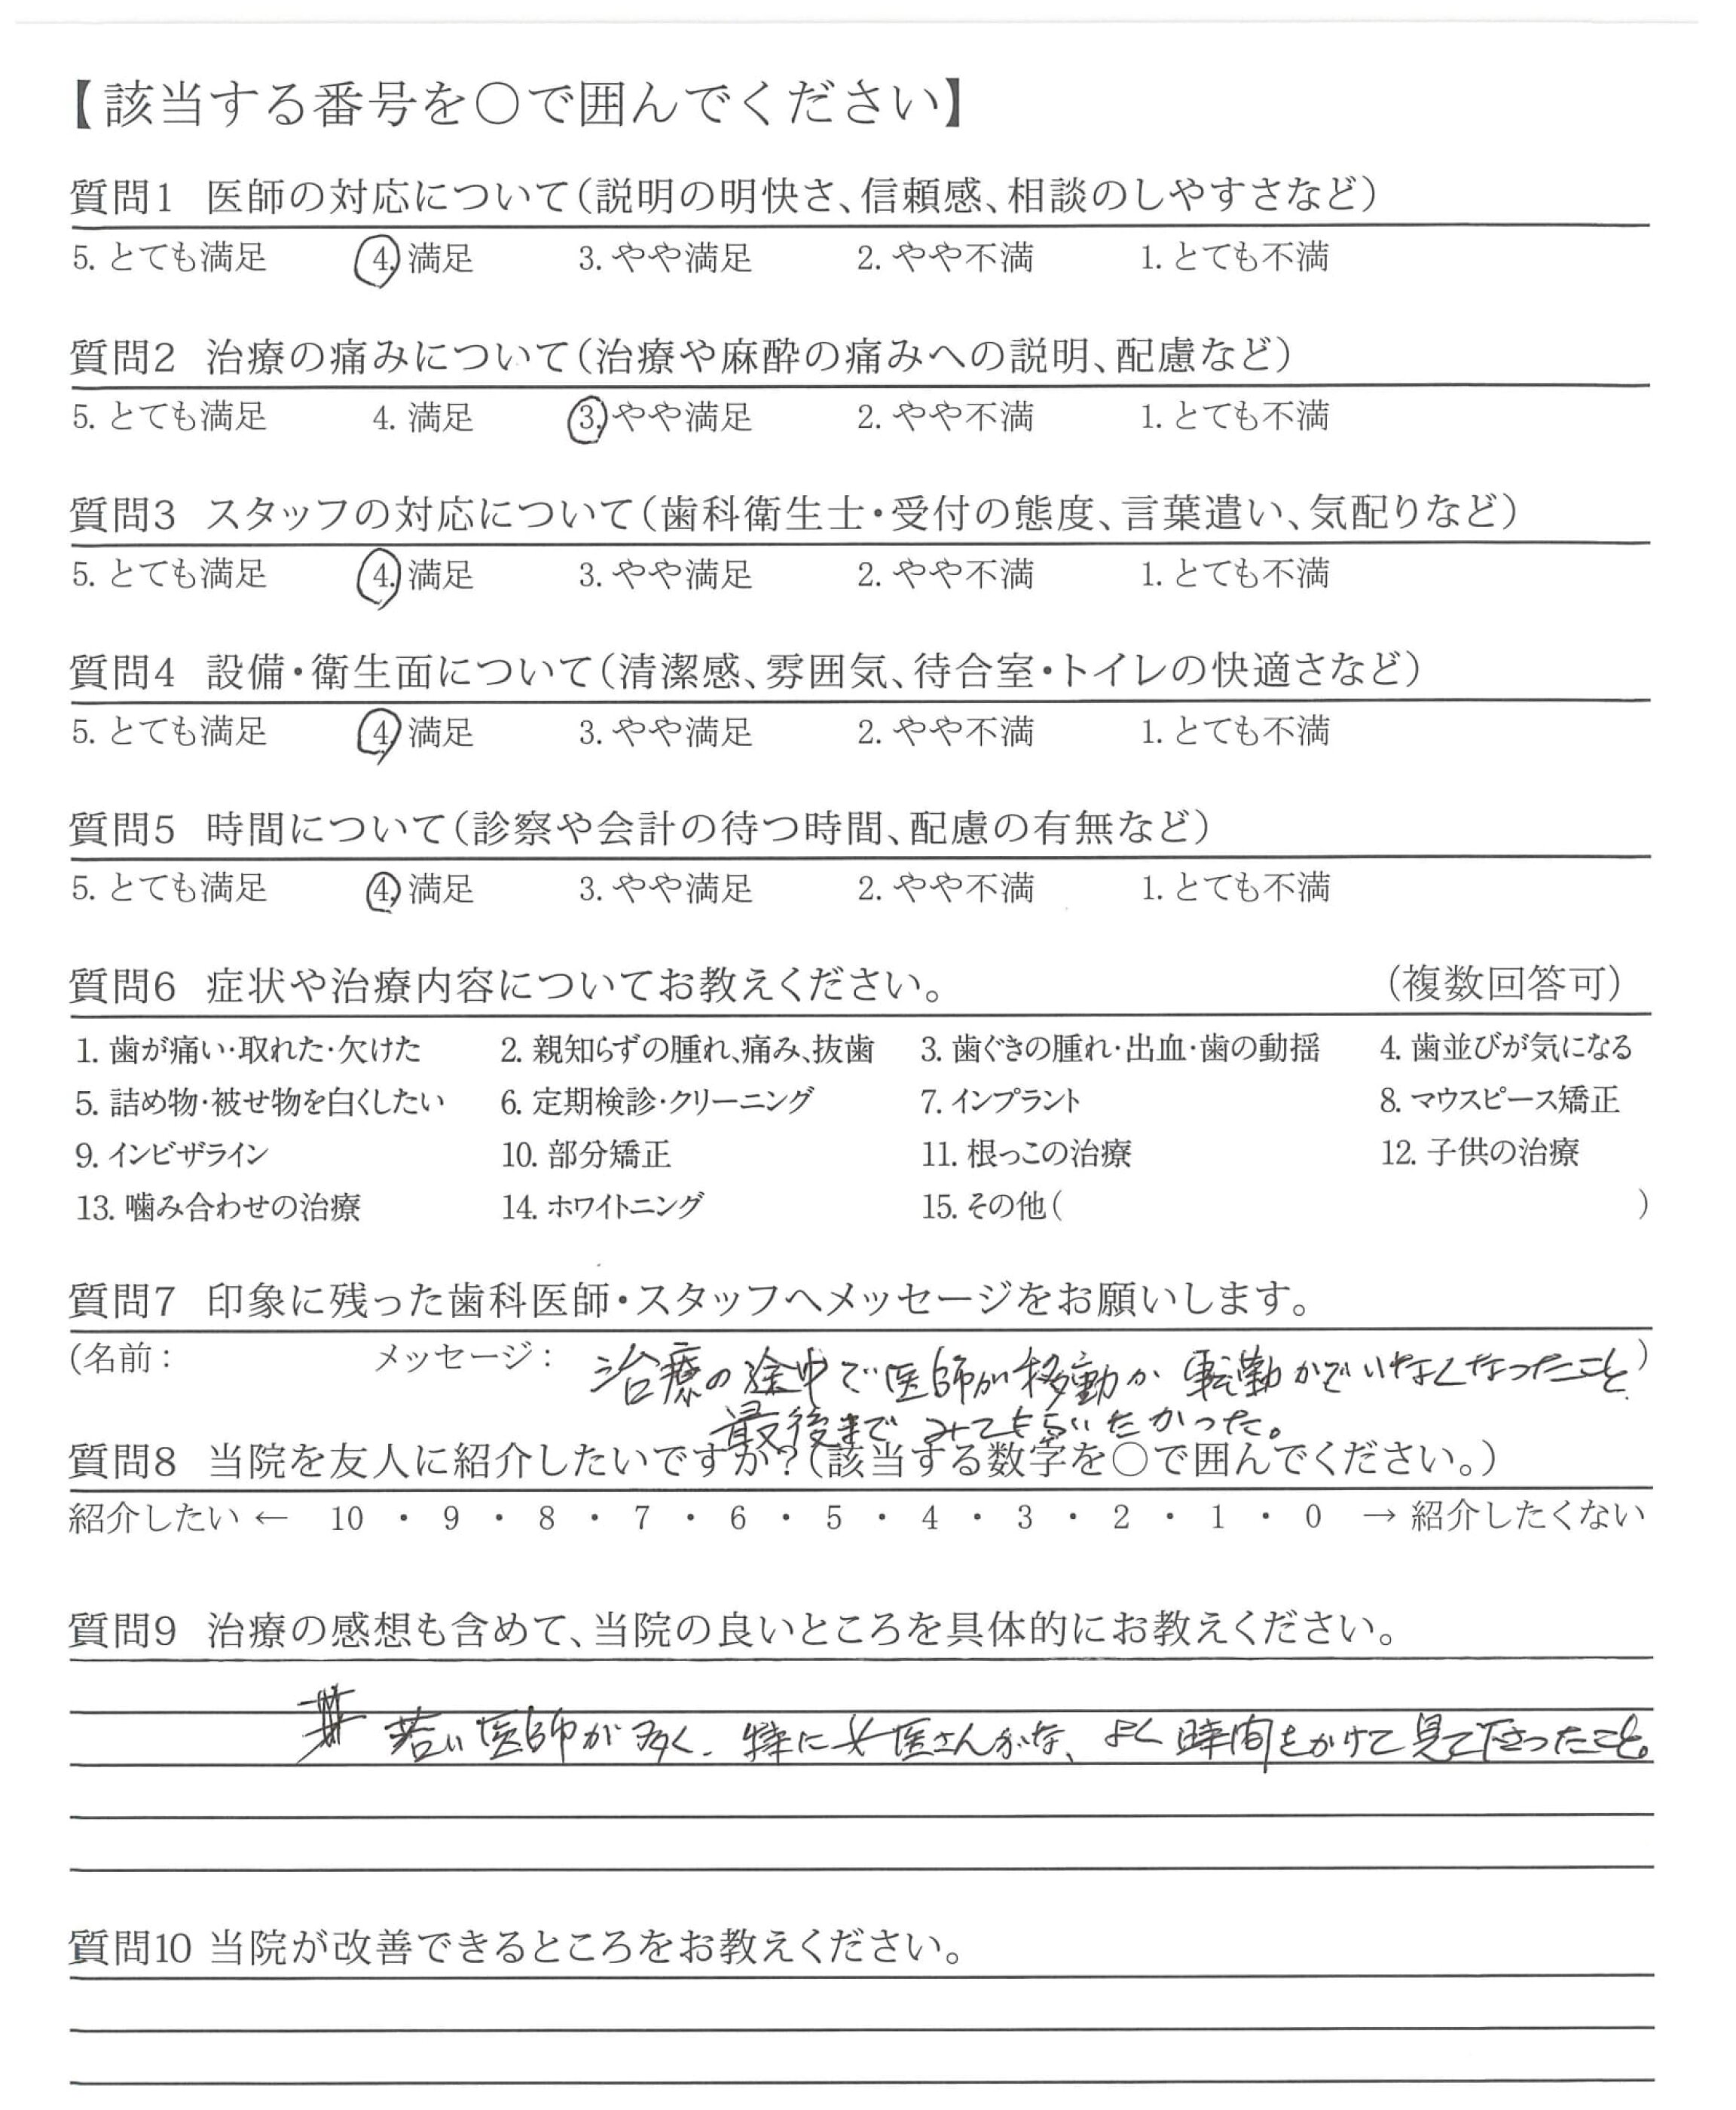 【該当する番号を○で囲んでください】
質問1 医師の対応について(説明の明快さ、信頼感、相談のしやすさなど)
5. とても満足 4. 満足 3. やや満足 2. やや不満 1. とても不満
質問2 治療の痛みについて(治療や麻酔の痛みへの説明、配慮など)
5. とても満足 4. 満足 3. やや満足 2. やや不満 1. とても不満
質問3 スタッフの対応について(歯科衛生士・受付の態度、言葉遣い、気配りなど)
5. とても満足 4. 満足 3. やや満足 2. やや不満 1. とても不満
質問4 設備・衛生面について(清潔感、雰囲気、待合室・トイレの快適さなど)
5. とても満足 4. 満足 3. やや満足 2. やや不満 1. とても不満
質問5 時間について(診察や会計の待つ時間、配慮の有無など)
5. とても満足 4. 満足 3. やや満足 2. やや不満 1. とても不満
質問6 症状や治療内容についてお教えください。 (複数回答可)
1. 歯が痛い・取れた・欠けた 2. 親知らずの腫れ、痛み、抜歯 3. 歯ぐきの腫れ・出血・歯の動揺 4. 歯並びが気になる
5. 詰め物・被せ物を白くしたい 6. 定期検診・クリーニング 7. インプラント 8. マウスピース矯正
9. インビザライン 10. 部分矯正 11. 根っこの治療 12. 子供の治療
13. 噛み合わせの治療 14. ホワイトニング 15. その他( )
質問7 印象に残った歯科医師・スタッフへメッセージをお願いします。
(名前: メッセージ: 治療の途中で医師が移動か 転勤かでいなくなったこと)
最後まで みてもらいたかった。
質問8 当院を友人に紹介したいですか?(該当する数字を○で囲んでください。)
紹介したい ← 10 ・ 9 ・ 8 ・ 7 ・ 6 ・ 5 ・ 4 ・ 3 ・ 2 ・ 1 ・ 0 → 紹介したくない
質問9 治療の感想も含めて、当院の良いところを具体的にお教えください。
若い医師が多く、特に女医さん、よく時間をかけて見て下さったこと。
質問10 当院が改善できるところをお教えください。